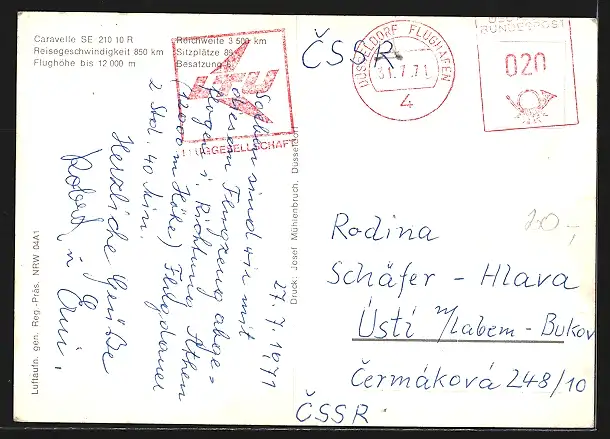 Caravelle SE 210 10 R
Reisegeschwindigkeit 850 km
Flughöhe bis 12 000 m
Reichweite 3 500 km
Sitzplätze
Besatzung
LTU
FLUGGESELLSCHAFT
ČSSR
DÜSSELDORF FLUGHAFEN
31.7.71
4
BUNDESPOST
020
27.7.1971
Soeben sind wir mit
diesem Flugzeug abge=
flogen i. Richtung Athen
(12000 m Höhe) Flugdauer
2 Std. 40 Min.
Herzliche Grüße
Robert u.
Luftaufn. gen. Reg.-Präs. NRW 04A1
Druck: Josef Mühlenbruch, Düsseldorf
Rodina
Schäfer - Hlava
Ústí n/Labem - Bukov
Čermáková 248/10
ČSSR